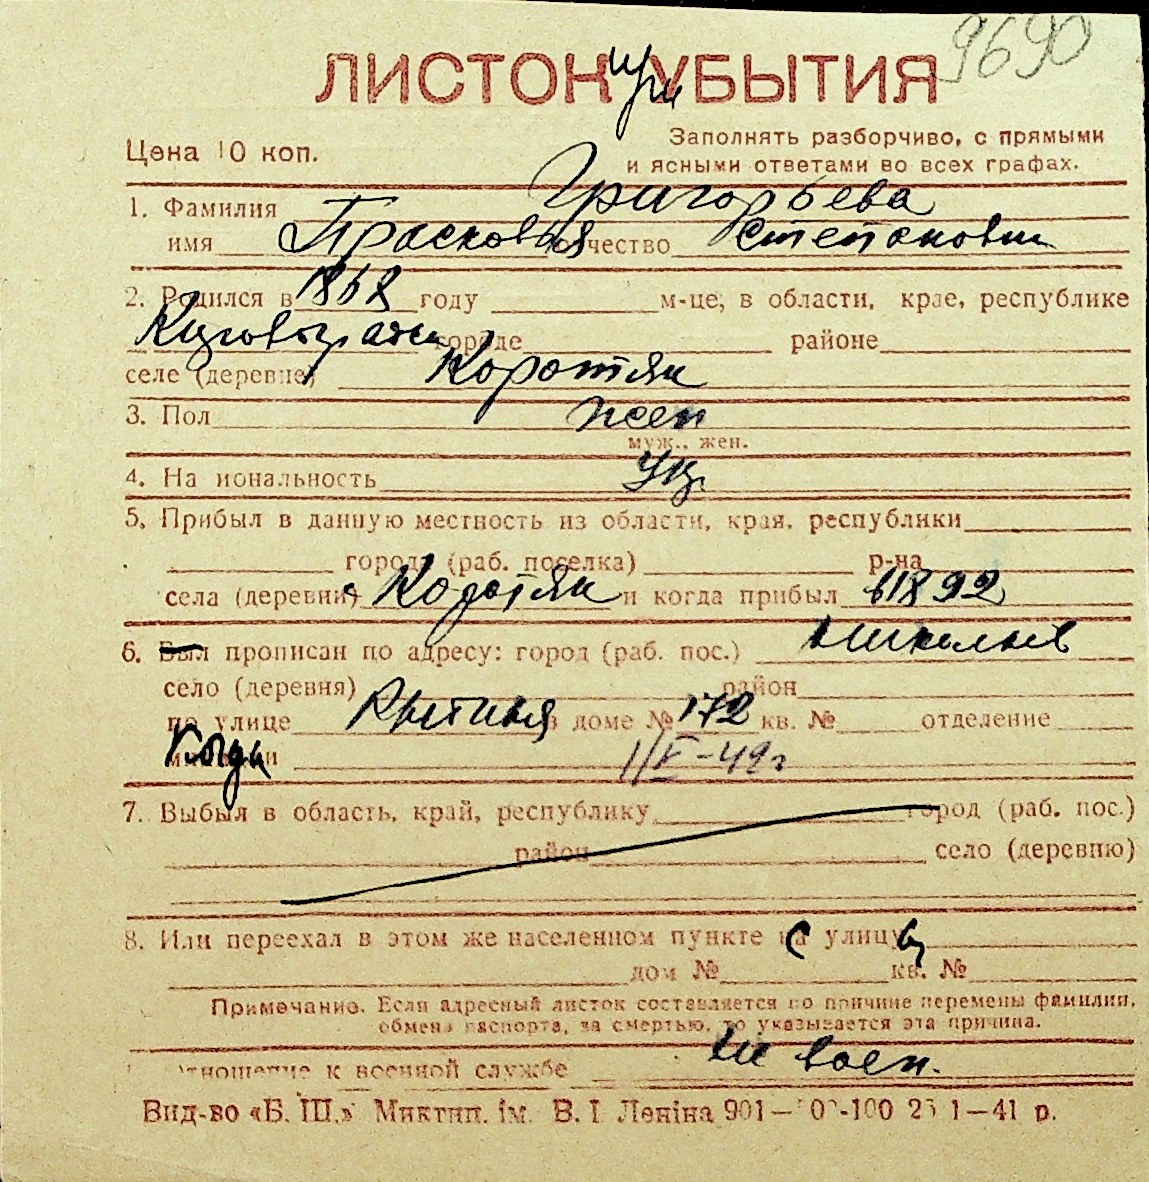 9690
ЛИСТОК при УБЫТИЯ
Цена 10 коп.
Заполнять разборчиво, с прямыми
и ясными ответами во всех графах.
1. Фамилия Григорьева
имя Прасковья отчество Степановна
2. Родился в 1868 году м-це, в области, крае, республике
городе районе
селе (деревне) Коротяк
3. Пол жен
муж., жен.
4. На иональность Укр.
5. Прибыл в данную местность из области, края, республики
города (раб. поселка) р-на
села (деревни) Коротяк и когда прибыл в 1892
6. Был прописан по адресу: город (раб. пос.) Николаев
село (деревня) район
по улице в доме № 172 кв. № отделение
Когда 1/V-42г
7. Выбыл в область, край, республику город (раб. пос.)
район село (деревню)
8. Или переехал в этом же населенном пункте с улицы
дом № кв. №
Примечание. Если адресный листок составляется по причине перемены фамилии,
обмена паспорта, за смертью, то указывается эта причина.
отношение к военной службе не воен.
Вид-во «Б. Ш.» Миктип. ім. В. І. Леніна 901— 00-100 25 1—41 р.